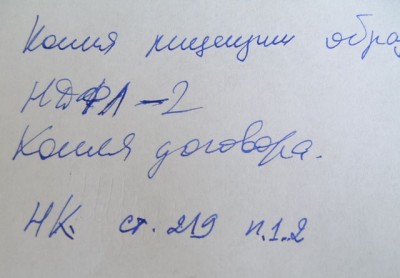 Копия лицензии образ
НДФЛ-2
Копия договора.
НК. ст. 219 п.1.2